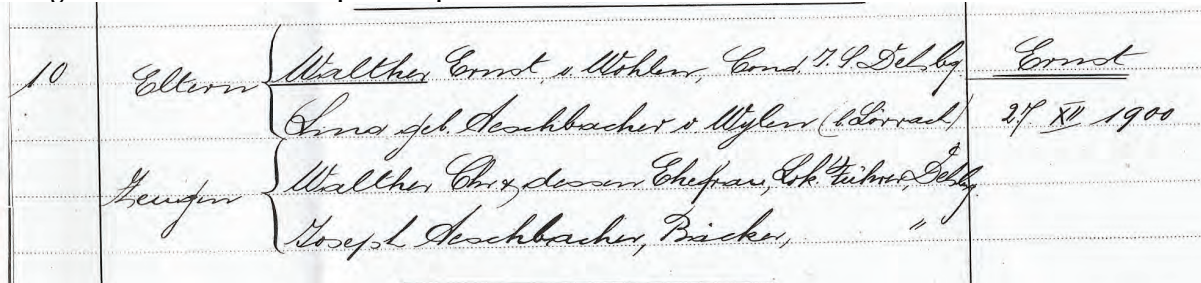 10 Eltern Walther Ernst v. Wohlen, Cond. J. S. Delsbg Ernst
Lina geb. Aeschbacher v Wylen (b. Lörrach) 27 XII 1900
Zeugen Walther Chr. & dessen Ehefrau, Lok. Führer, Delsbg.
Joseph Aeschbacher, Bäcker, "